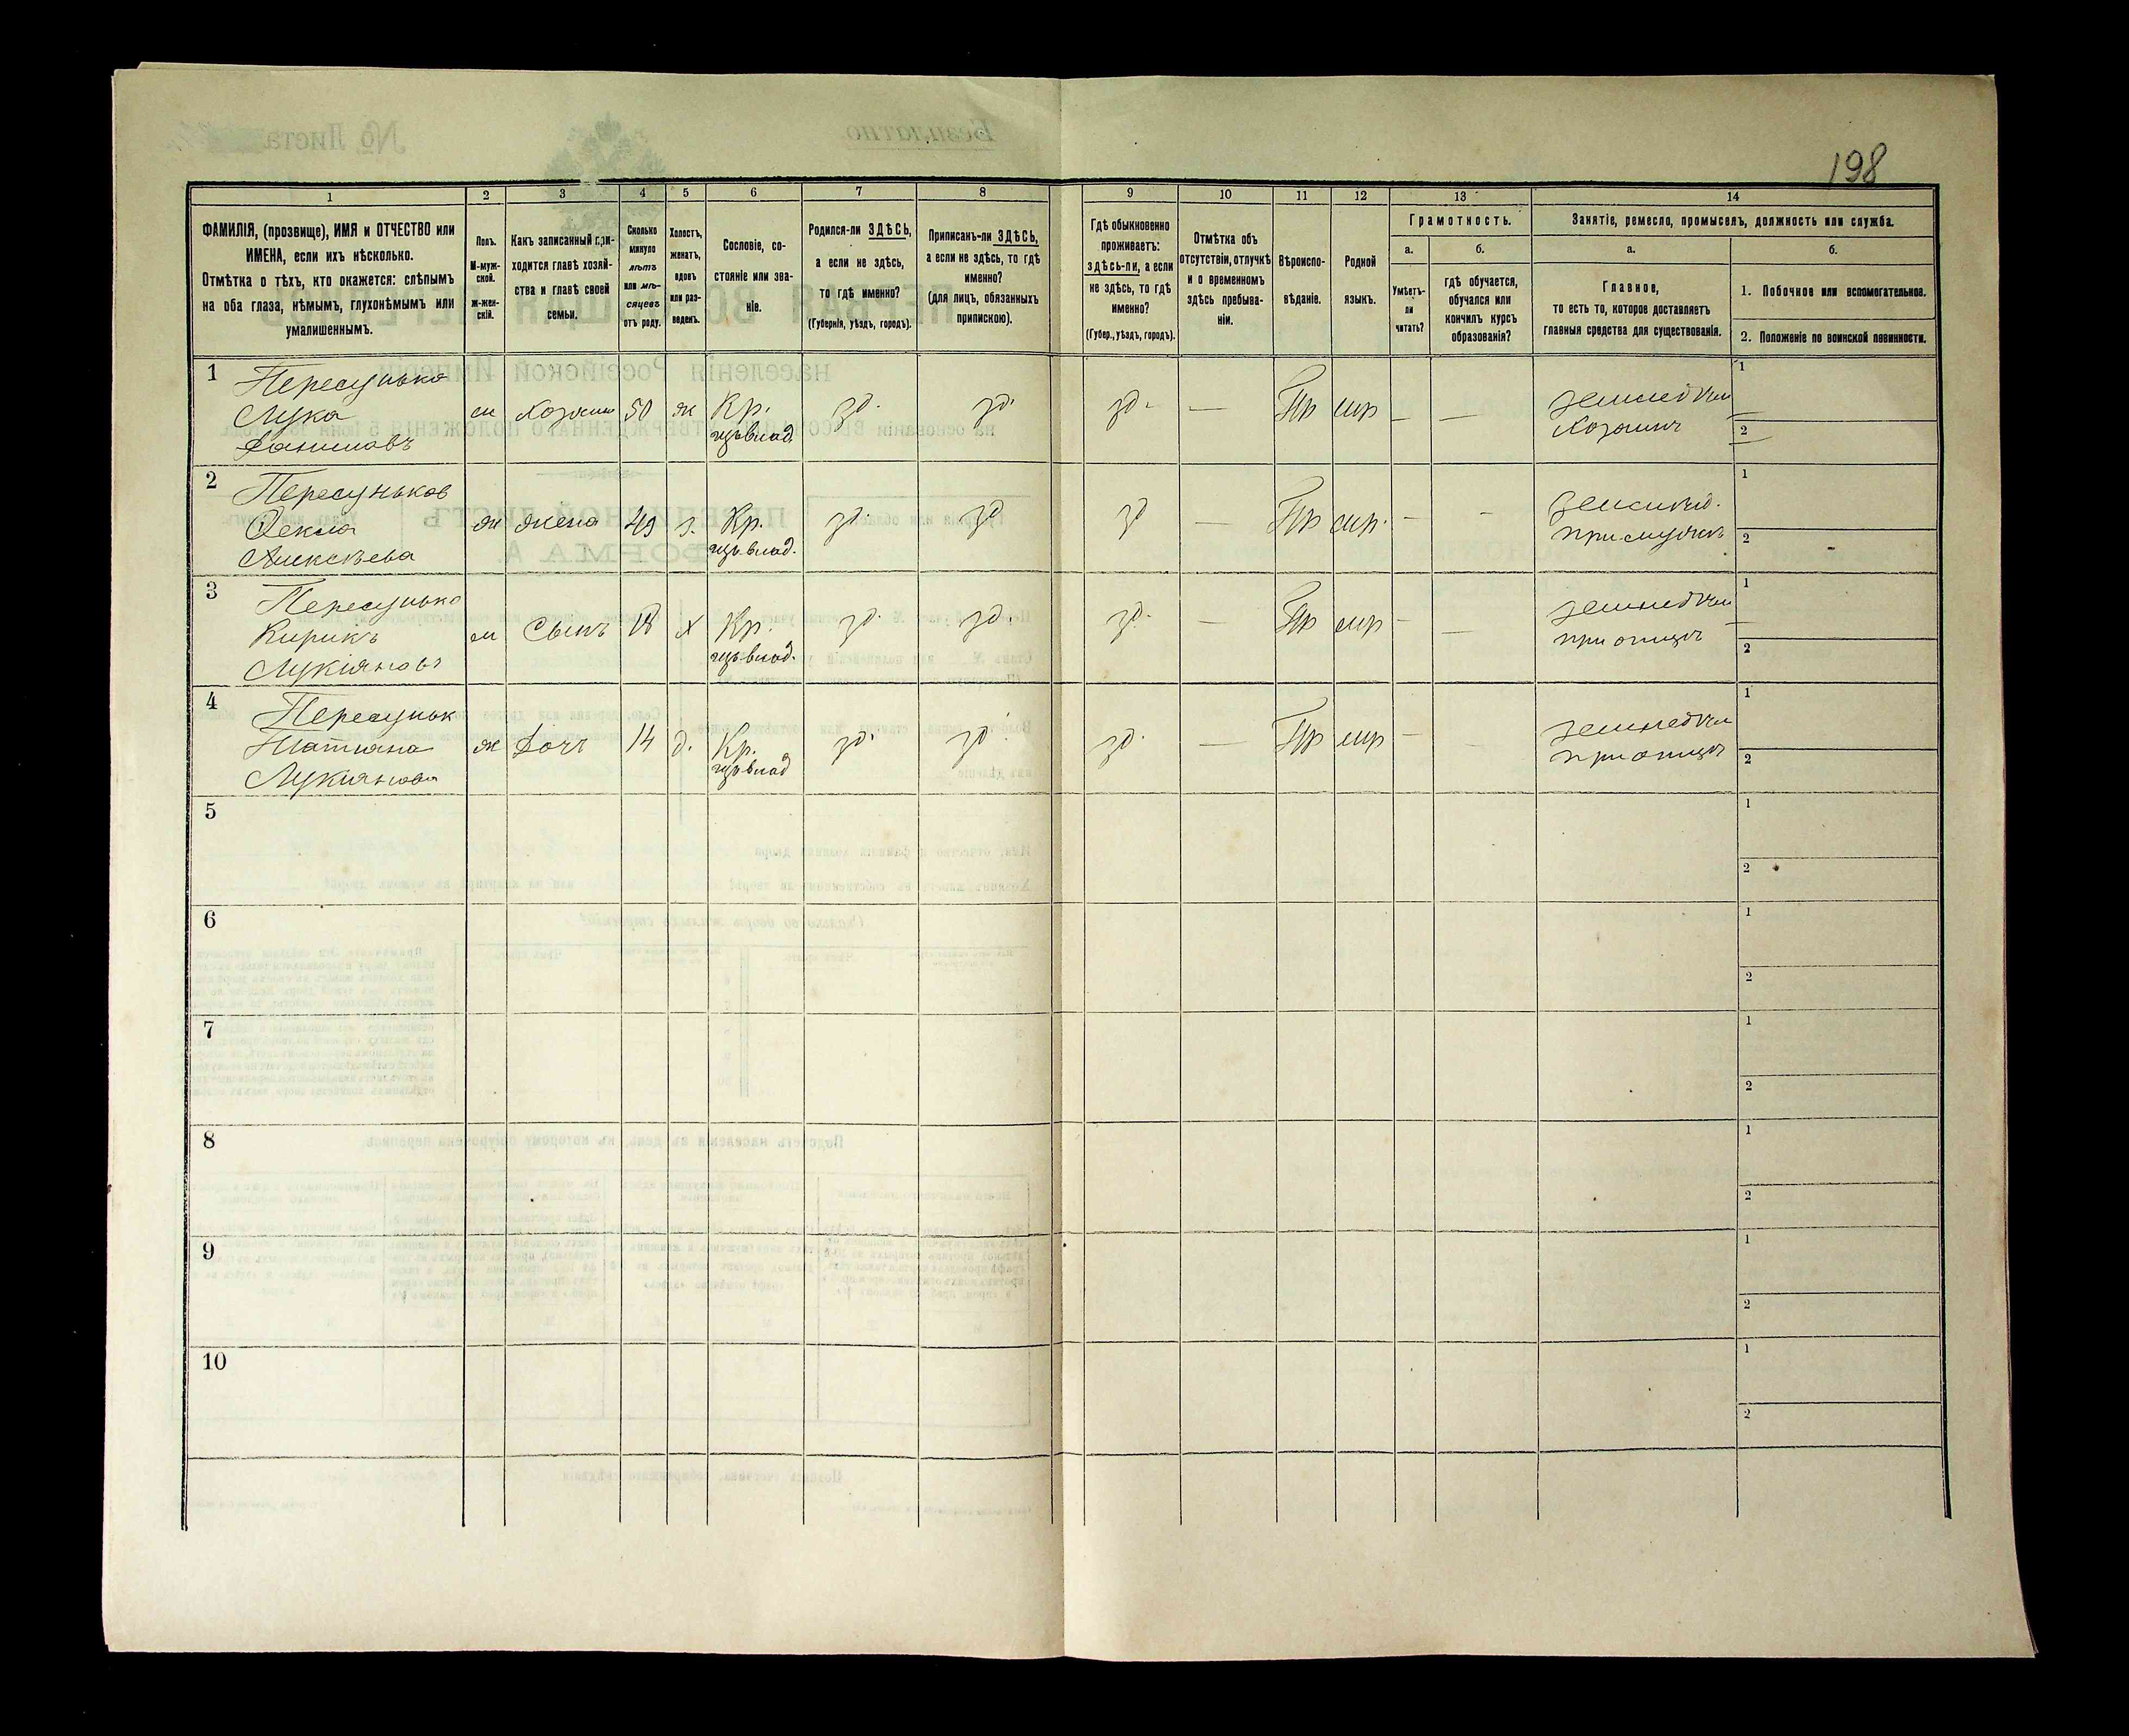 198
1 2 3 4 5 6 7 8 9 10 11 12 13 14
ФАМИЛІЯ, (прозвище), ИМЯ и ОТЧЕСТВО или
ИМЕНА, если ихъ нѣсколько.
Отмѣтка о тѣхъ, кто окажется: слѣпымъ
на оба глаза, нѣмымъ, глухонѣмымъ или
умалишеннымъ.
Полъ.
М-муж-
ской.
Ж-жен-
скій.
Какъ записанный при-
ходится главѣ хозяй-
ства и главѣ своей
семьи.
Сколько
минуло
лѣтъ
или мѣ-
сяцевъ
отъ роду.
Холостъ,
женатъ,
вдовъ
или раз-
веденъ.
Сословіе, со-
стояніе или зва-
ніе.
Родился-ли ЗДѢСЬ,
а если не здѣсь,
то гдѣ именно?
(Губернія, уѣздъ, городъ).
Приписанъ-ли ЗДѢСЬ,
а если не здѣсь, то гдѣ
именно?
(для лицъ, обязанныхъ
припискою).
Гдѣ обыкновенно
проживаетъ:
здѣсь-ли, а если
не здѣсь, то гдѣ
именно?
(Губер., уѣздъ, городъ).
Отмѣтка объ
отсутствіи, отлучкѣ
и о временномъ
здѣсь пребыва-
ніи.
Вѣроиспо-
вѣданіе.
Родной
языкъ.
Грамотность.
а.
Умѣетъ-
ли
читать?
б.
гдѣ обучается,
обучался или
кончилъ курсъ
образованія?
Занятіе, ремесло, промыселъ, должность или служба.
а.
Главное,
то есть то, которое доставляетъ
главныя средства для существованія.
б.
1. Побочное или вспомогательное.
2. Положеніе по воинской повинности.
1 Пересунько
Лука
м 50 ж Кр. зд. зд. зд. — Пр мр — —
Хозяинъ
1
2
2 Пересуньков
Фекла
Алексѣева
ж жена 49 з. Кр. зд. зд зд — Пр мр. — -
1
2
3 Пересунько
Кирикъ
Лукіяновъ
м Сынъ 18 х Кр. зд. зд. зд. — Пр мр — —
при отцѣ
1
2
4 Пересуньк
Татіяна
Лукіянова
ж Дочь 14 д. Кр. зд. зд. зд. — Пр мр —
при отцѣ
1
2
5
1
2
6
1
2
7
1
2
8
1
2
9
1
2
10
1
2